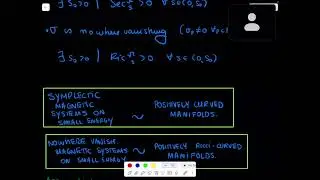 ∃ s₀>0 | Sec^Ω_s >0 ∀ s∈(0,s₀)
• σ is nowhere vanishing (σₚ≠0 ∀p∈
∃ s₀>0 | Ric^Ω_s >0 ∀ s∈(0,s₀)
SYMPLECTIC
MAGNETIC
SYSTEMS ON
SMALL ENERGY
~
POSITIVELY CURVED
MANIFOLDS.
NOWHERE VANISH.
MAGNETIC SYSTEMS
ON SMALL ENERGY
~
POSITIVELY RICCI-CURVED
MANIFOLDS.